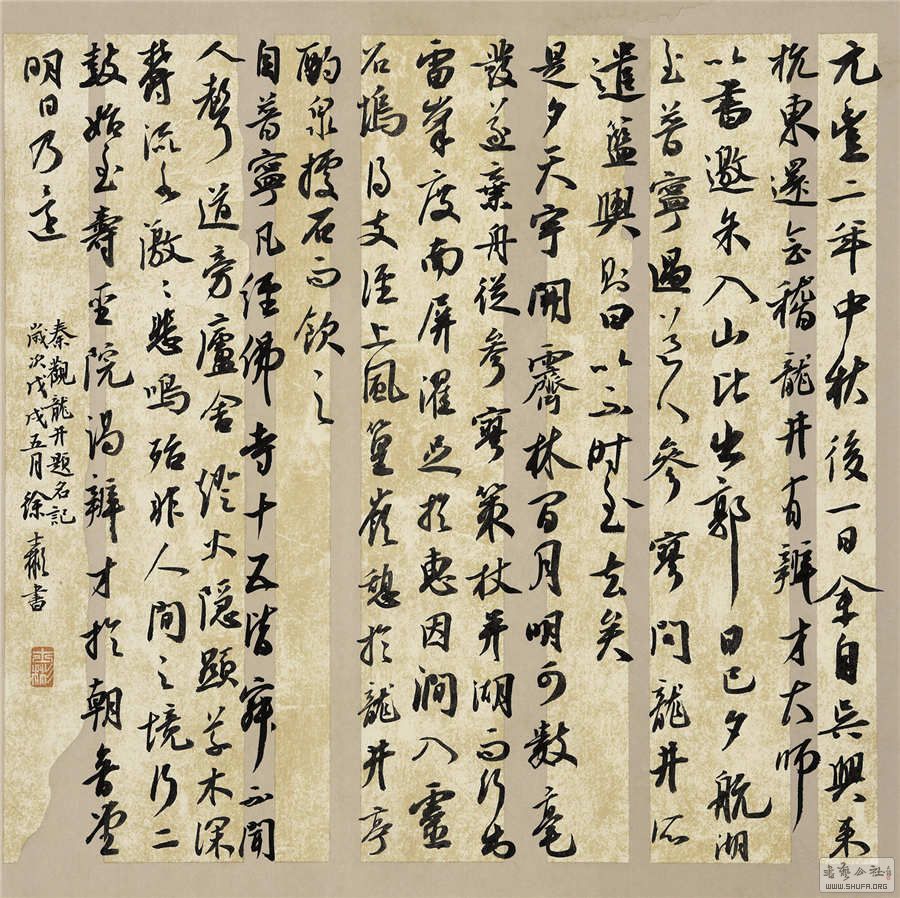 元豐二年中秋後一日余自吳興來
杭東還會稽龍井有辨才大師
以書邀余入山比出郭日已夕航湖
至普寧遇道人參寥問龍井所
遣籃輿則曰以不時至去矣
是夕天宇開霽林間月明可數毫
發遂棄舟從參寥策杖并湖而行出
雷峯度南屏濯足於惠因澗入靈
石塢得支徑上風篁嶺憩於龍井亭
酌泉據石而飲之
自普寧凡經佛寺十五皆寂不聞
人聲道旁廬舍燈火隱顯草木深
鬱流水激〻悲鳴殆非人間之境行二
鼓始至壽聖院謁辨才於朝音堂
明日乃還
秦觀龍井題名記
歲次戊戌五月徐書
WWW.SHUFA.ORG